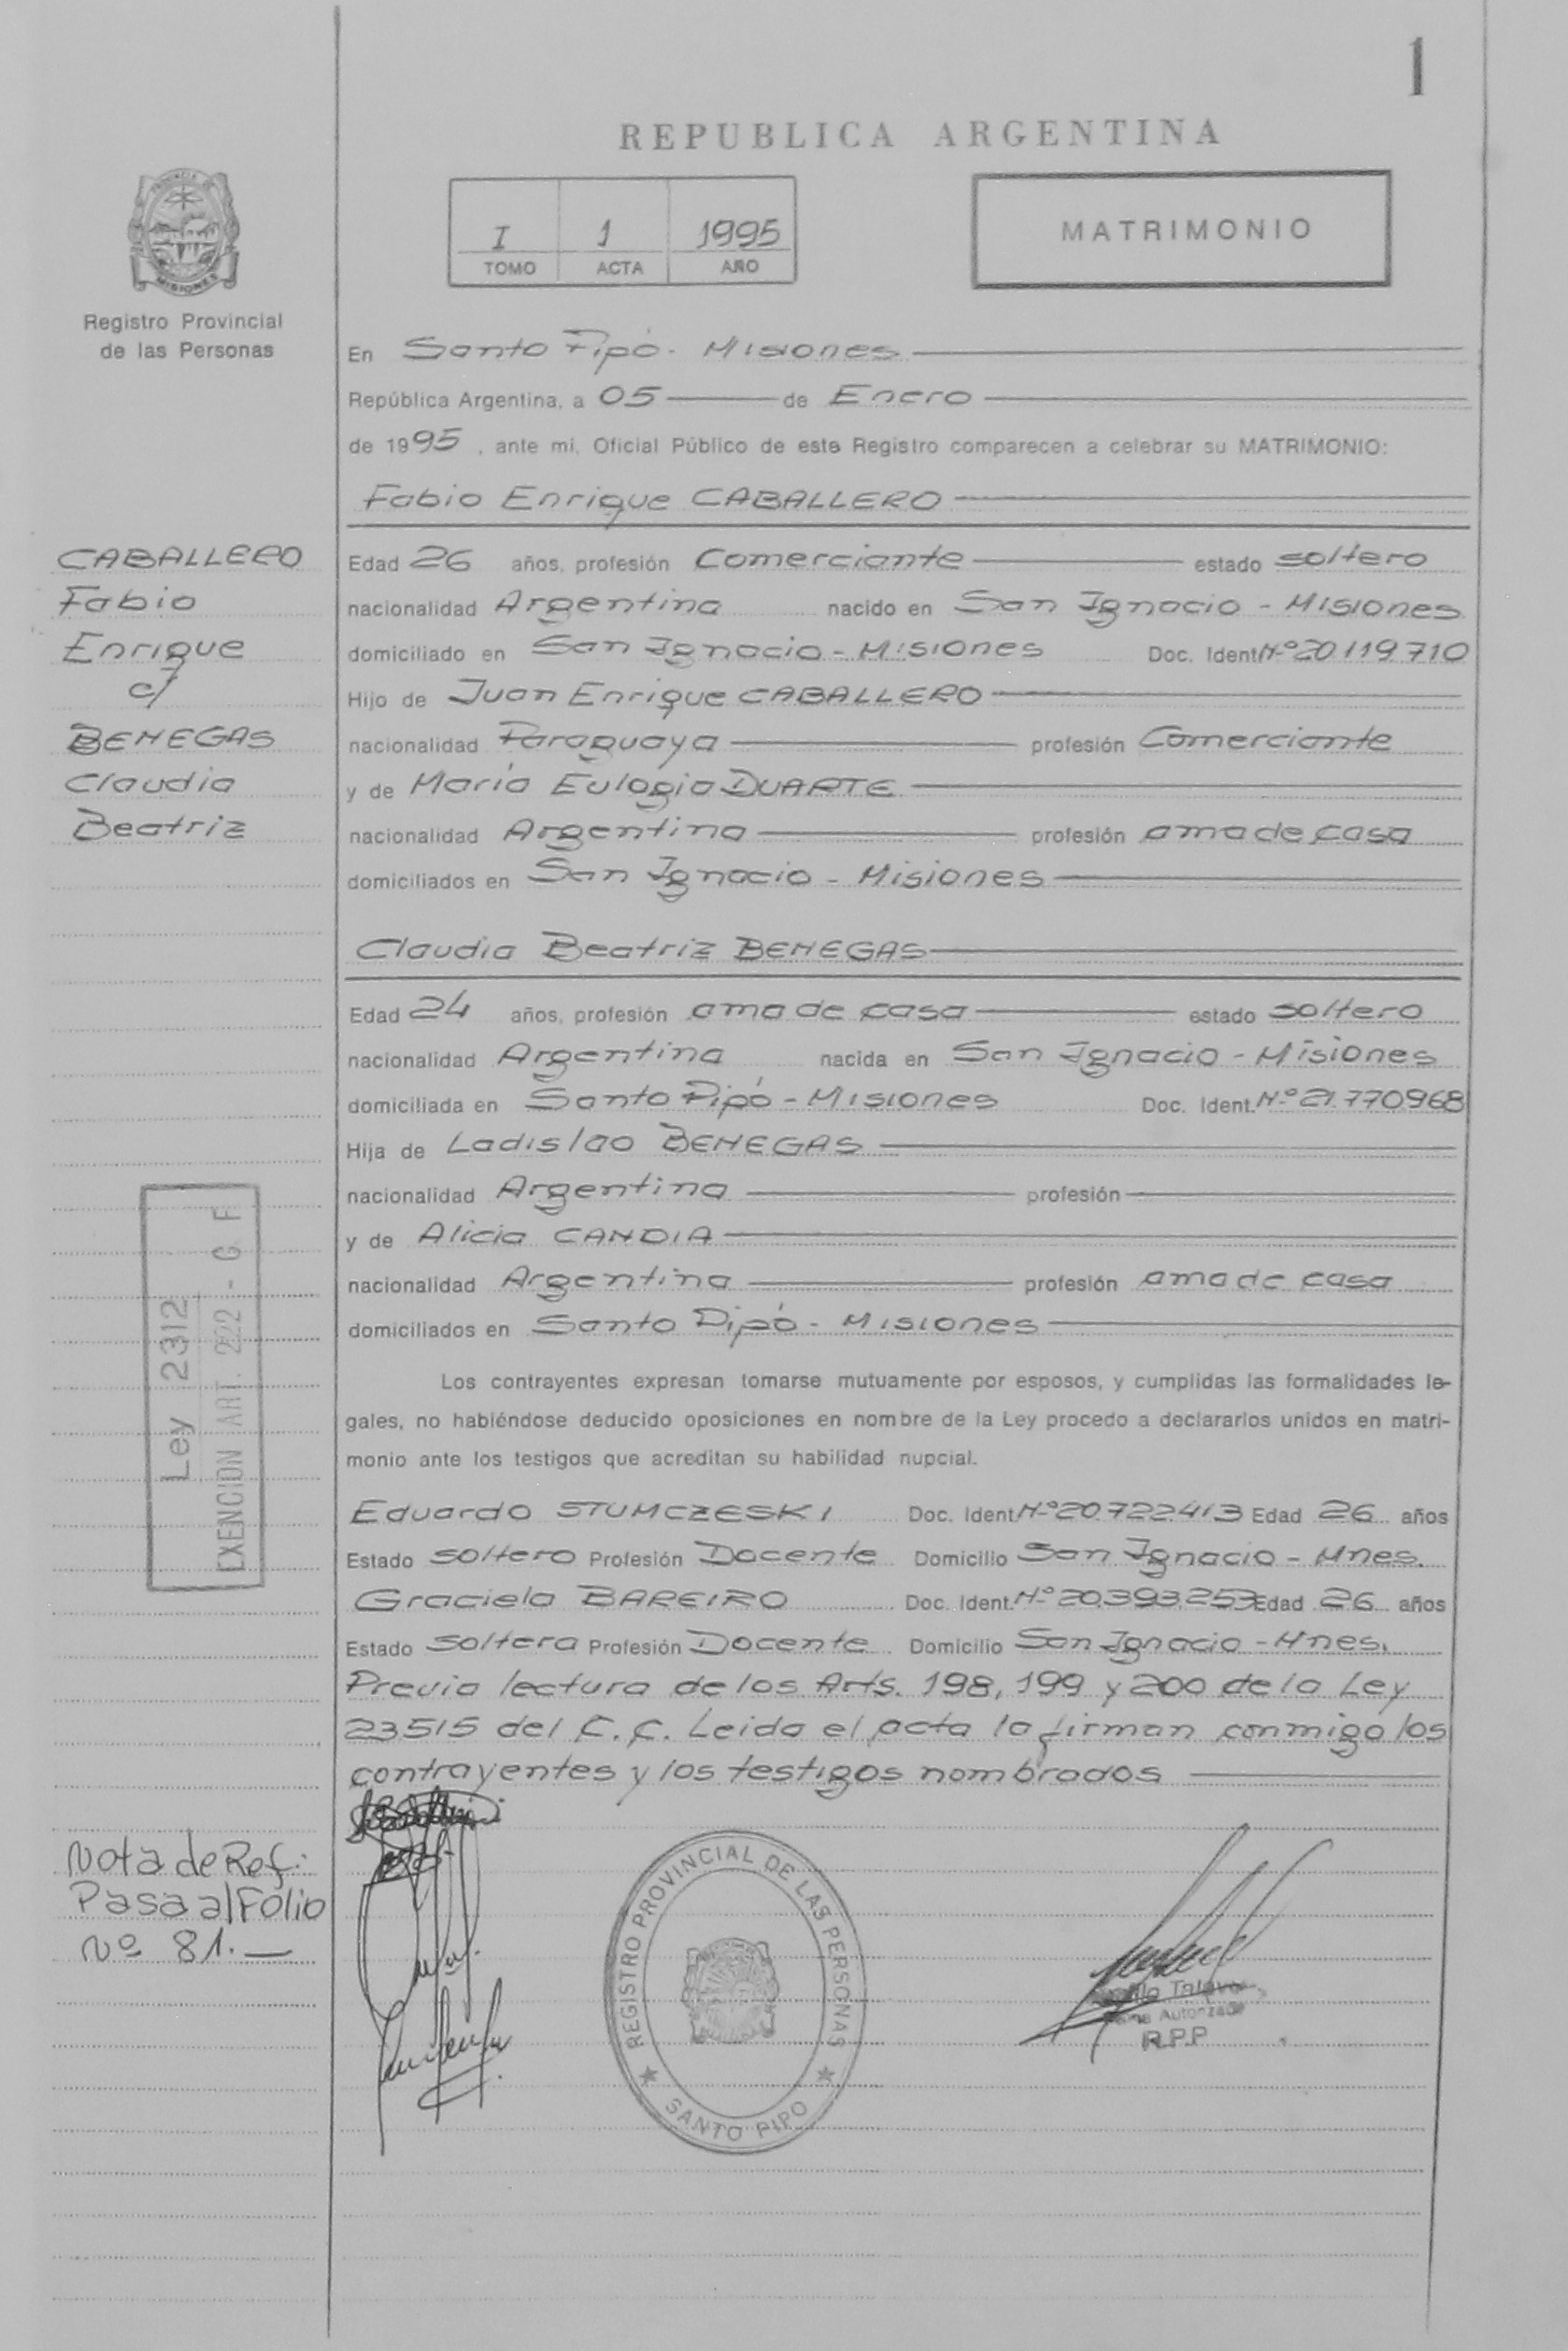 1
REPUBLICA ARGENTINA
PROVINCIA DE
MISIONES
Registro Provincial
de las Personas
I 1 1995
TOMO ACTA AÑO
MATRIMONIO
En Santo Pipó - Misiones
República Argentina, a 05 de Enero
de 1995, ante mi, Oficial Público de este Registro comparecen a celebrar su MATRIMONIO:
Fabio Enrique CABALLERO
CABALLERO
Fabio
Enrique
c/
BENEGAS
Claudia
Beatriz
Edad 26 años, profesión Comerciante estado soltero
nacionalidad Argentina nacido en San Ignacio - Misiones
domiciliado en San Ignacio - Misiones Doc. Ident. Nº 20119710
Hijo de Juan Enrique CABALLERO
nacionalidad Paraguaya profesión Comerciante
y de María Eulogia DUARTE
nacionalidad Argentina profesión ama de casa
domiciliados en San Ignacio - Misiones
Claudia Beatriz BENEGAS
Edad 24 años, profesión ama de casa estado soltero
nacionalidad Argentina nacida en San Ignacio - Misiones
domiciliada en Santo Pipó - Misiones Doc. Ident. Nº 21.770968
Hija de Ladislao BENEGAS
nacionalidad Argentina profesión
y de Alicia CANDIA
nacionalidad Argentina profesión ama de casa
domiciliados en Santo Pipó - Misiones
Ley 2312
EXENCION ART. 222 - G F
Los contrayentes expresan tomarse mutuamente por esposos, y cumplidas las formalidades le-
gales, no habiéndose deducido oposiciones en nombre de la Ley procedo a declararlos unidos en matri-
monio ante los testigos que acreditan su habilidad nupcial.
Eduardo STUMCZESKI Doc. Ident. Nº 20.722.413 Edad 26 años
Estado soltero Profesión Docente Domicilio San Ignacio - Mnes.
Graciela BAREIRO Doc. Ident. Nº 20.393.253 Edad 26 años
Estado soltera Profesión Docente Domicilio San Ignacio - Mnes.
Previa lectura de los Arts. 198, 199 y 200 de la Ley
23515 del C.C. Leida el acta la firman conmigo los
contrayentes y los testigos nombrados
Nota de Ref:
Pasa al Folio
Nº 81.
REGISTRO PROVINCIAL DE LAS PERSONAS
SANTO PIPO
R.P.P